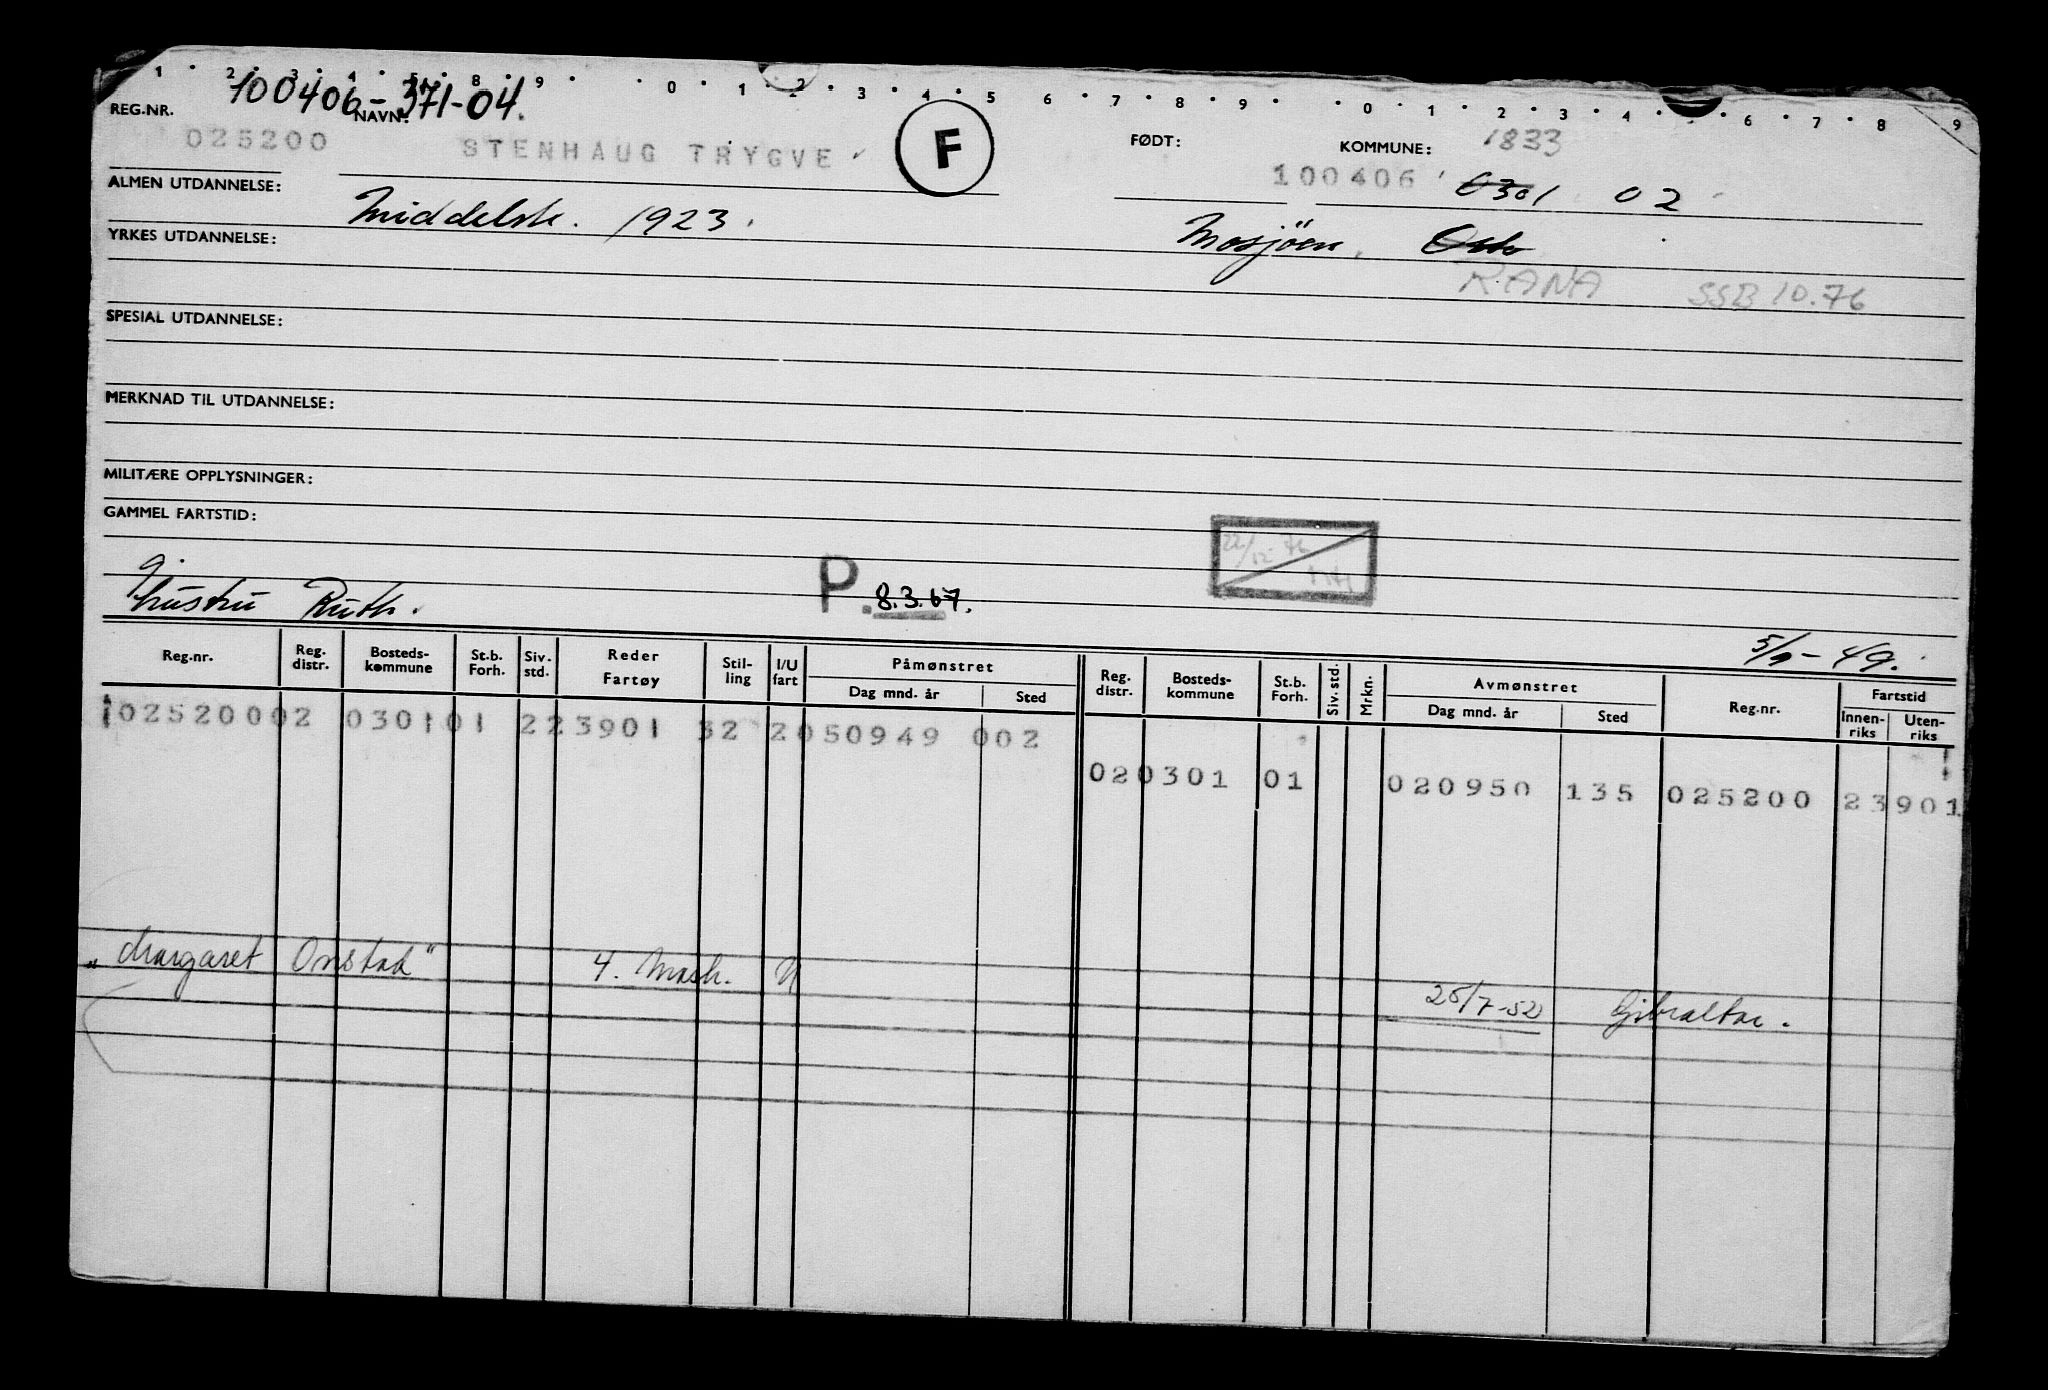 1 2 3 4 5 8 9 0 1 2 3 4 5 6 7 8 9 0 1 2 3 4 6 7 8 9
100406-371-04.
REG.NR. NAVN: FØDT: KOMMUNE: 1833
025200 STENHAUG TRYGVE F 100406 0301 02
ALMEN UTDANNELSE: Middelsk. 1923. Mosjöen. Oslo
YRKES UTDANNELSE: RANA SSB 10.76
SPESIAL UTDANNELSE:
MERKNAD TIL UTDANNELSE:
MILITÆRE OPPLYSNINGER:
GAMMEL FARTSTID: 22/12-76
g.
Hustru Ruth. P. 8.3.67. 5/9-49.
Reg.nr. Reg. distr. Bosteds-kommune St.b. Forh. Siv. std. Reder Fartøy Stil-ling I/U fart Påmønstret Dag mnd. år Sted Reg. distr. Bosteds-kommune St.b. Forh. Siv. std. Mrkn. Avmønstret Dag mnd. år Sted Reg.nr. Fartstid Innen-riks Uten-riks
02520002 030101 223901 32 2050949 002
020301 01 020950 135 025200 23901
"Margaret Onstad" 4. Mask. U
25/7-52 Gibraltar.